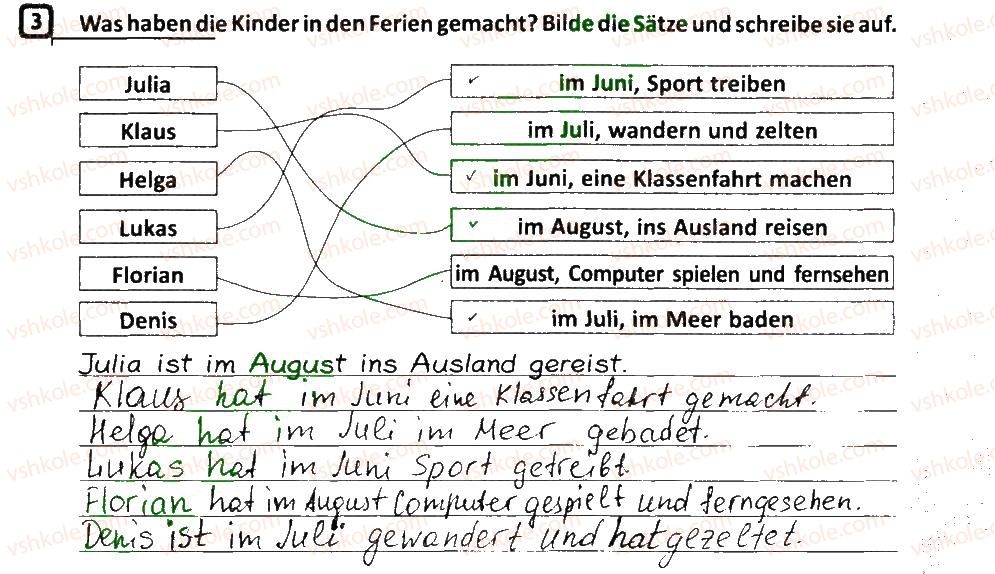 3 Was haben die Kinder in den Ferien gemacht? Bilde die Sätze und schreibe sie auf.
Julia
im Juni, Sport treiben
Klaus
im Juli, wandern und zelten
Helga
im Juni, eine Klassenfahrt machen
Lukas
im August, ins Ausland reisen
Florian
im August, Computer spielen und fernsehen
Denis
im Juli, im Meer baden
Julia ist im August ins Ausland gereist.
Klaus hat im Juni eine Klassenfahrt gemacht.
Helga hat im Juli im Meer gebadet.
Lukas hat im Juni Sport getreibt.
Florian hat im August Computer gespielt und ferngesehen.
Denis ist im Juli gewandert und hat gezeltet.
vshkole.com